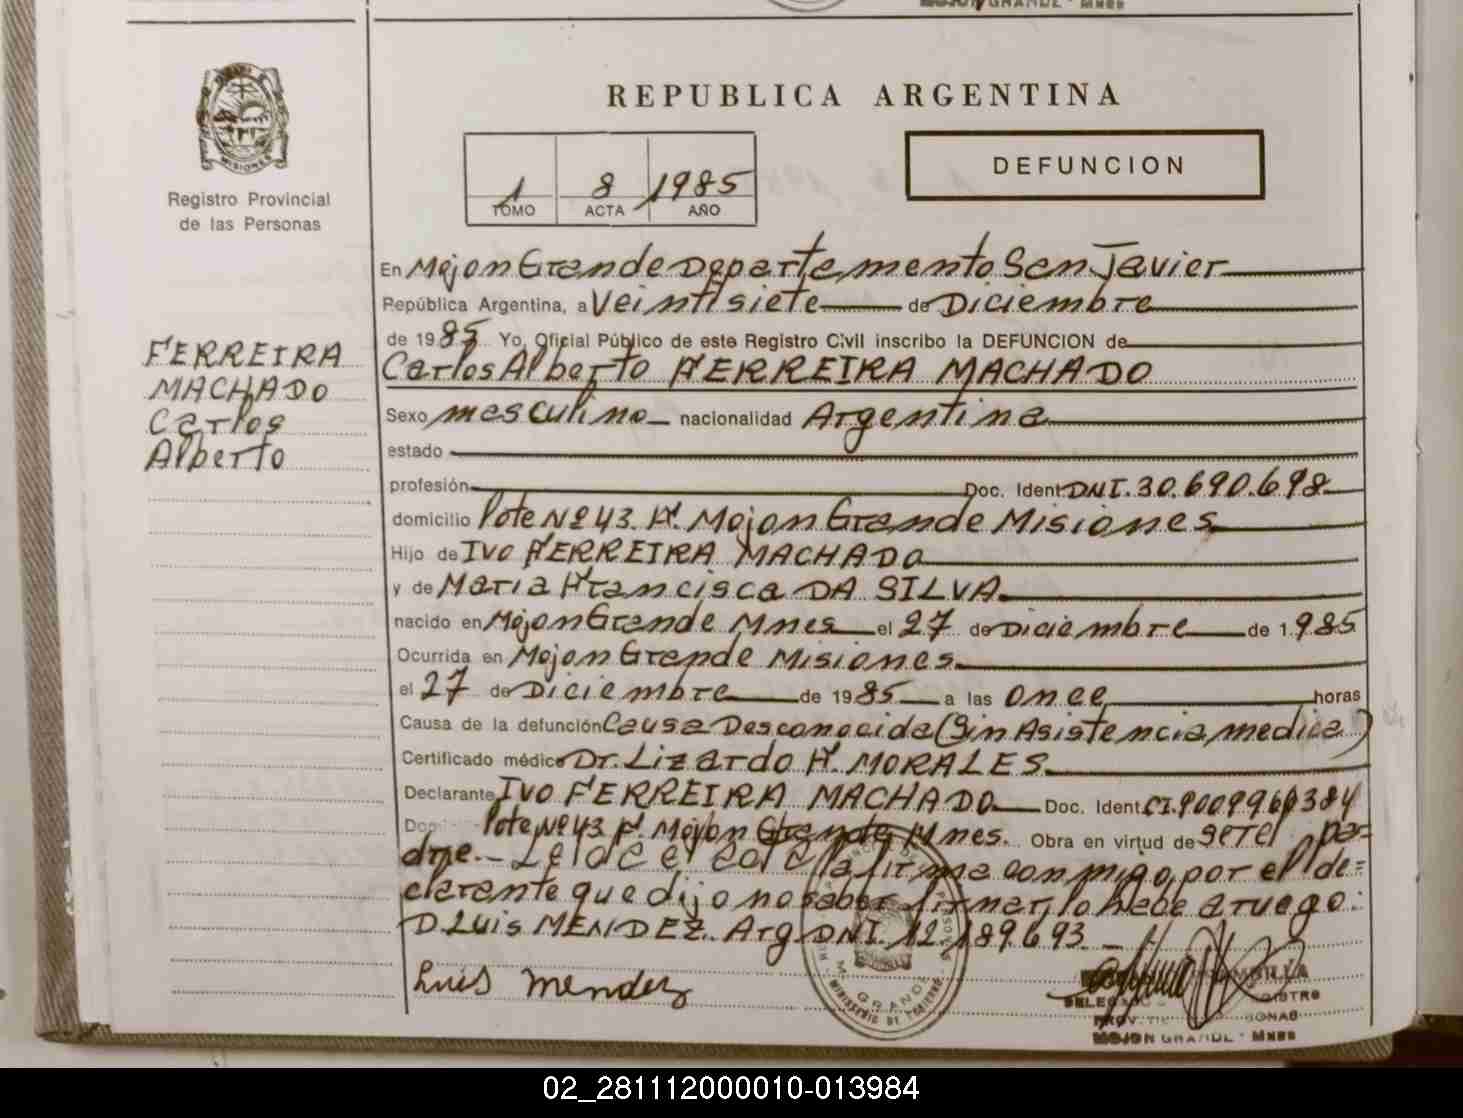 MOJON GRANDE - Mnes
REPUBLICA ARGENTINA
MISIONES
Registro Provincial
de las Personas
1 8 1985
TOMO ACTA AÑO
DEFUNCION
FERREIRA
MACHADO
Carlos
Alberto
En Mojon Grande Departamento San Javier
República Argentina, a Veintisiete de Diciembre
de 1985 Yo, Oficial Público de este Registro Civil inscribo la DEFUNCION de
Carlos Alberto FERREIRA MACHADO
Sexo masculino nacionalidad Argentina
estado
profesión Doc. Ident. DNI. 30.690.698
domicilio Lote Nº 43. F. Mojon Grande Misiones
Hijo de IVO FERREIRA MACHADO
y de Maria Francisca DA SILVA.
nacido en Mojon Grande Mnes el 27 de Diciembre de 1.985
Ocurrida en Mojon Grande Misiones.
el 27 de Diciembre de 1985 a las once horas
Causa de la defunción Causa Desconocida (Sin Asistencia medica)
Certificado médico Dr. Lizardo F. MORALES.
Declarante IVO FERREIRA MACHADO Doc. Ident. CI.
Lote Nº 43 F. Mojon Grande Mnes. Obra en virtud de ser el pa=
dre.- Leida el acta la firma conmigo, por el de=
clarante que dijo no saber firmar, lo hace a ruego:
D. Luis MENDEZ. Arg. DNI. 12.189.693. -
Luis Mendez
M. GRANDE
MINISTERIO DE GOBIERNO
MOJON GRANDE - Mnes
02_281112000010-013984